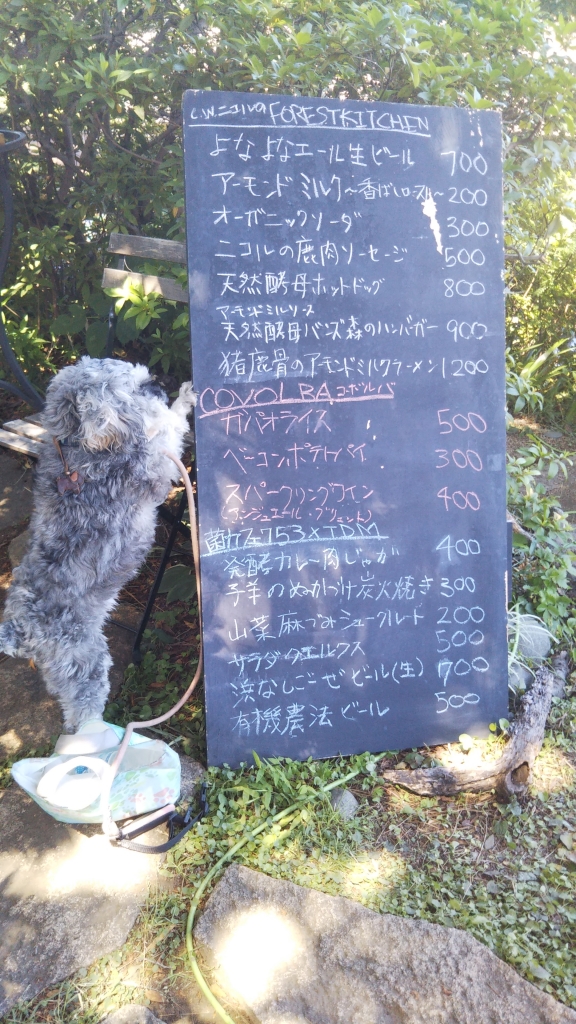 C.W.ニコルの FORESTKITCHEN
よなよなエール生ビール 700
アーモンドミルク〜香ばしロースト〜 200
オーガニックソーダ 300
ニコルの鹿肉ソーセージ 500
天然酵母ホットドッグ 800
アーモンドミルクソース
天然酵母バンズ森のハンバーガー 900
猪鹿骨のアーモンドミルクラーメン 1200
COVOLBA コーボルバ
ガパオライス 500
ベーコンポテトパイ 300
スパークリングワイン 400
菌カフェ753×TDM
発酵カレー肉じゃが 400
子羊のぬかづけ炭火焼き 300
山菜麻つみシュークルート 200
サラダ 500
浜なしごーぜビール(生) 700
有機農法ビール 500